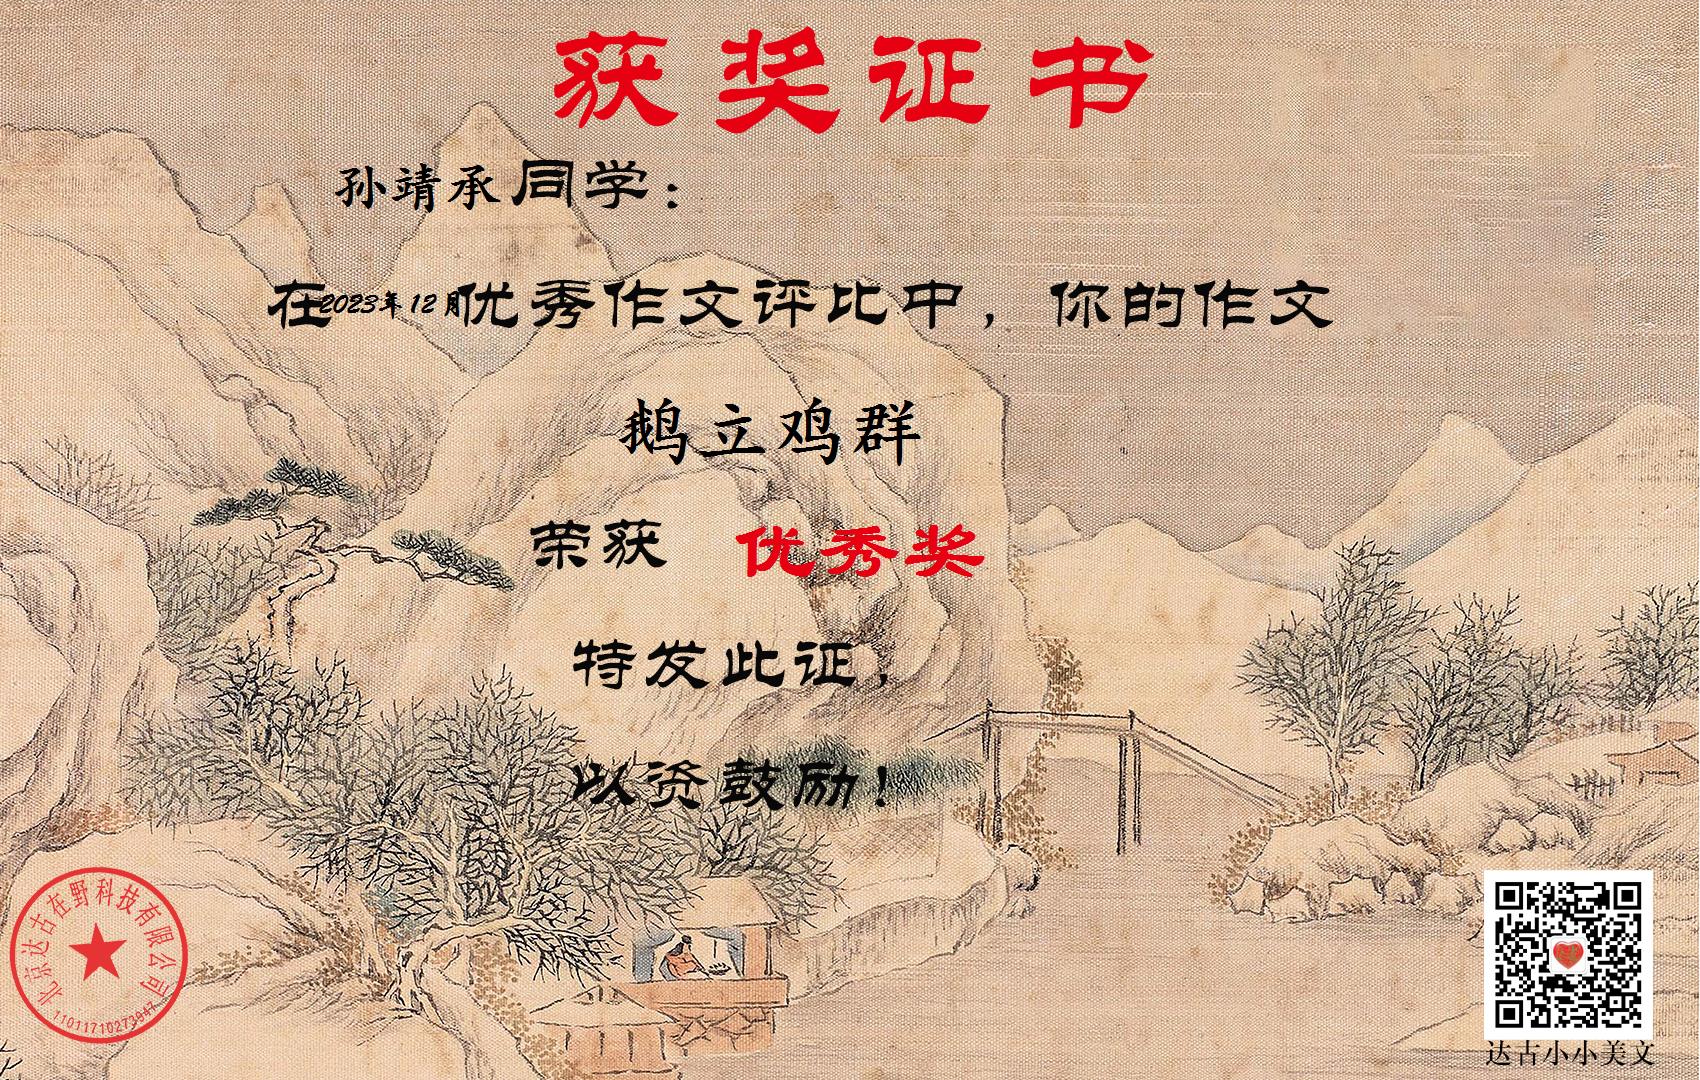 获奖证书
孙靖承同学：
在2023年12月优秀作文评比中，你的作文
鹅立鸡群
荣获 优秀奖
特发此证，
以资鼓励！
北京达古在野科技有限公司
11011710273947
达古小小美文